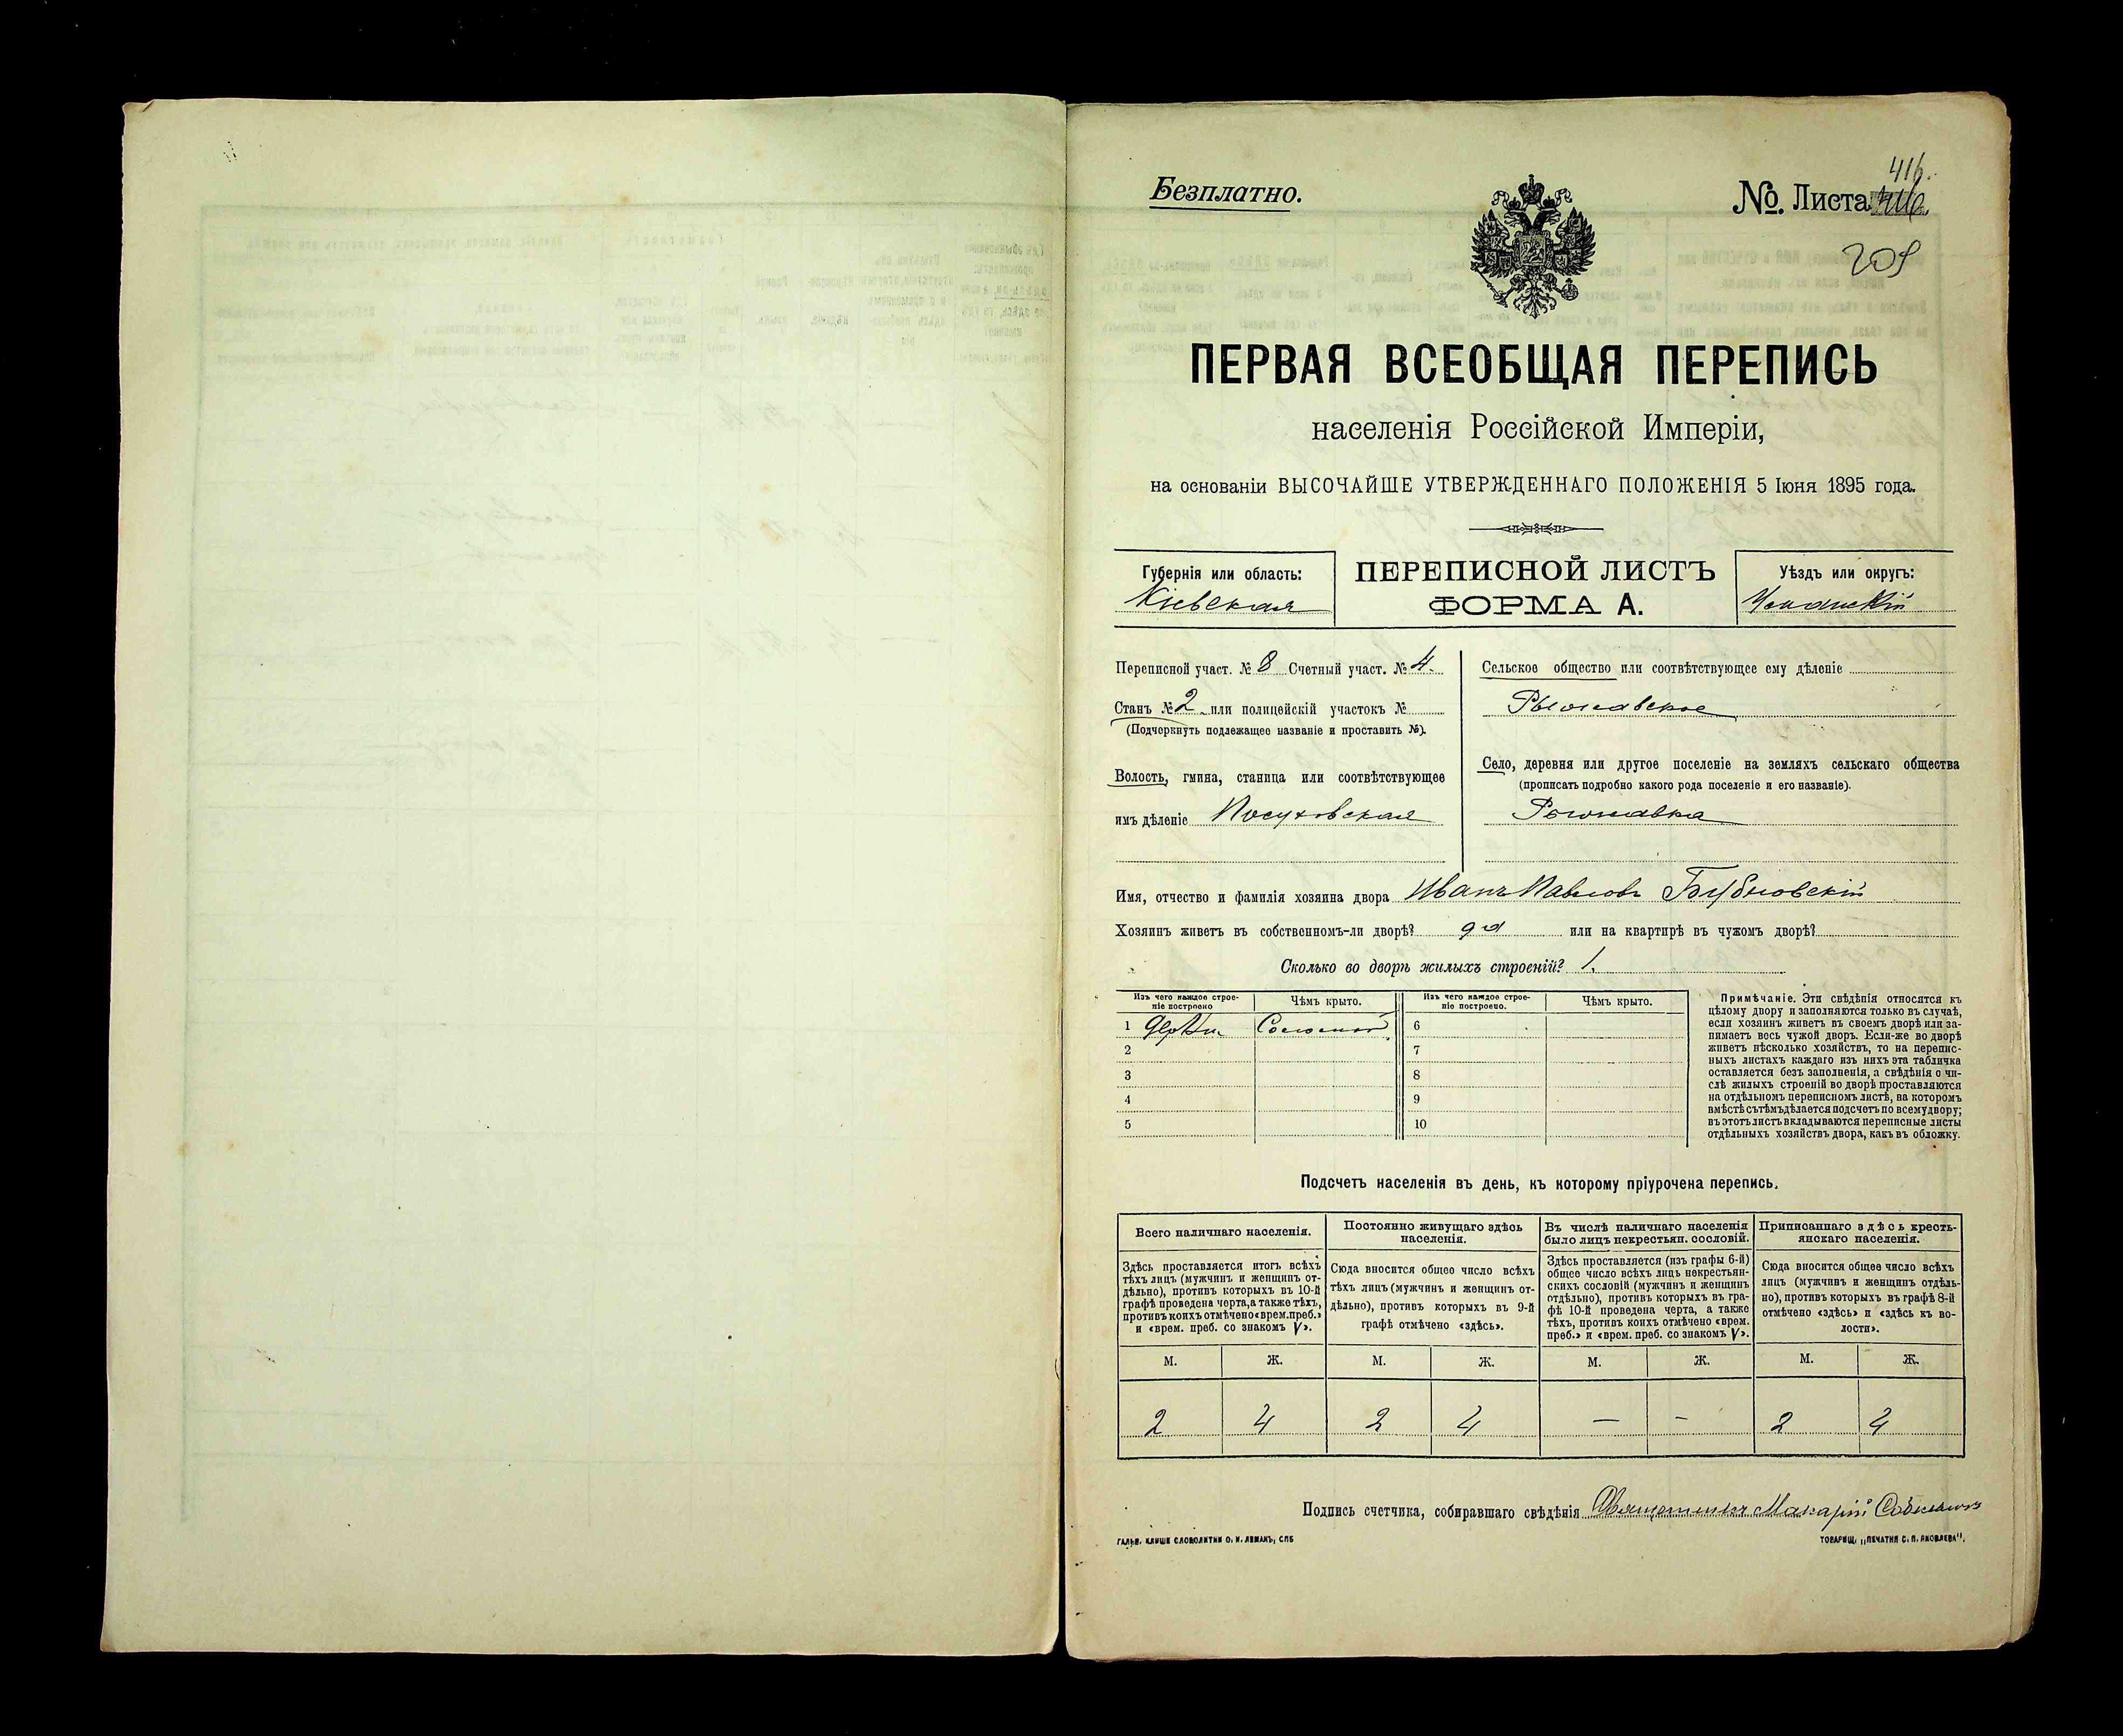 Безплатно.
416.
№. Листа 416.
209
ПЕРВАЯ ВСЕОБЩАЯ ПЕРЕПИСЬ
населенія Россійской Имперіи,
на основаніи ВЫСОЧАЙШЕ УТВЕРЖДЕННАГО ПОЛОЖЕНІЯ 5 Іюня 1895 года.
Губернія или область:
Кіевская
ПЕРЕПИСНОЙ ЛИСТЪ
ФОРМА А.
Уѣздъ или округъ:
Уманскій
Переписной участ. № 8 Счетный участ. № 4.
Станъ № 2 или полицейскій участокъ №
(Подчеркнуть подлежащее названіе и проставить №).
Волость, гмина, станица или соотвѣтствующее
имъ дѣленіе Посуховская
Сельское общество или соотвѣтствующее ему дѣленіе
Рыжавское
Село, деревня или другое поселеніе на земляхъ сельскаго общества
(прописать подробно какого рода поселеніе и его названіе).
Рыжавка
Имя, отчество и фамилія хозяина двора Иванъ Павловъ Бубновскій
Хозяинъ живетъ въ собственномъ-ли дворѣ? да или на квартирѣ въ чужомъ дворѣ?
Сколько во дворѣ жилыхъ строеній? 1.
Изъ чего каждое строе-
ніе построено
Чѣмъ крыто.
Изъ чего каждое строе-
ніе построено.
Чѣмъ крыто.
1 Соломой 6
2 7
3 8
4 9
5 10
Примѣчаніе. Эти свѣдѣнія относятся къ
цѣлому двору и заполняются только въ случаѣ,
если хозяинъ живетъ въ своемъ дворѣ или за-
нимаетъ весь чужой дворъ. Если-же во дворѣ
живетъ нѣсколько хозяйствъ, то на перепис-
ныхъ листахъ каждаго изъ нихъ эта табличка
оставляется безъ заполненія, а свѣдѣнія о чи-
слѣ жилыхъ строеній во дворѣ проставляются
на отдѣльномъ переписномъ листѣ, на которомъ
вмѣстѣ съ тѣмъ дѣлается подсчетъ по всему двору;
въ этотъ листъ вкладываются переписные листы
отдѣльныхъ хозяйствъ двора, какъ въ обложку.
Подсчетъ населенія въ день, къ которому пріурочена перепись.
Всего наличнаго населенія.
Здѣсь проставляется итогъ всѣхъ
тѣхъ лицъ (мужчинъ и женщинъ от-
дѣльно), противъ которыхъ въ 10-й
графѣ проведена черта, а также тѣхъ,
противъ коихъ отмѣчено «врем. преб.»
и «врем. преб. со знакомъ V».
Постоянно живущаго здѣсь
населенія.
Сюда вносится общее число всѣхъ
тѣхъ лицъ (мужчинъ и женщинъ от-
дѣльно), противъ которыхъ въ 9-й
графѣ отмѣчено «здѣсь».
Въ числѣ наличнаго населенія
было лицъ некрестьян. сословій.
Здѣсь проставляется (изъ графы 6-й)
общее число всѣхъ лицъ некрестьян-
скихъ сословій (мужчинъ и женщинъ
отдѣльно), противъ которыхъ въ гра-
фѣ 10-й проведена черта, а также
тѣхъ, противъ коихъ отмѣчено «врем.
преб.» и «врем. преб. со знакомъ V».
Приписаннаго здѣсь кресть-
янскаго населенія.
Сюда вносится общее число всѣхъ
лицъ (мужчинъ и женщинъ отдѣль-
но), противъ которыхъ въ графѣ 8-й
отмѣчено «здѣсь» и «здѣсь къ во-
лости».
М. Ж. М. Ж. М. Ж. М. Ж.
2 4 2 4 — - 2 4
Подпись счетчика, собиравшаго свѣдѣнія Священникъ Макарій
ГАЛЬВ. КЛИШЕ СЛОВОЛИТНИ О. И. ЛЕМАНЪ, СПБ
ТОВАРИЩ. „ПЕЧАТНЯ С. П. ЯКОВЛЕВА".